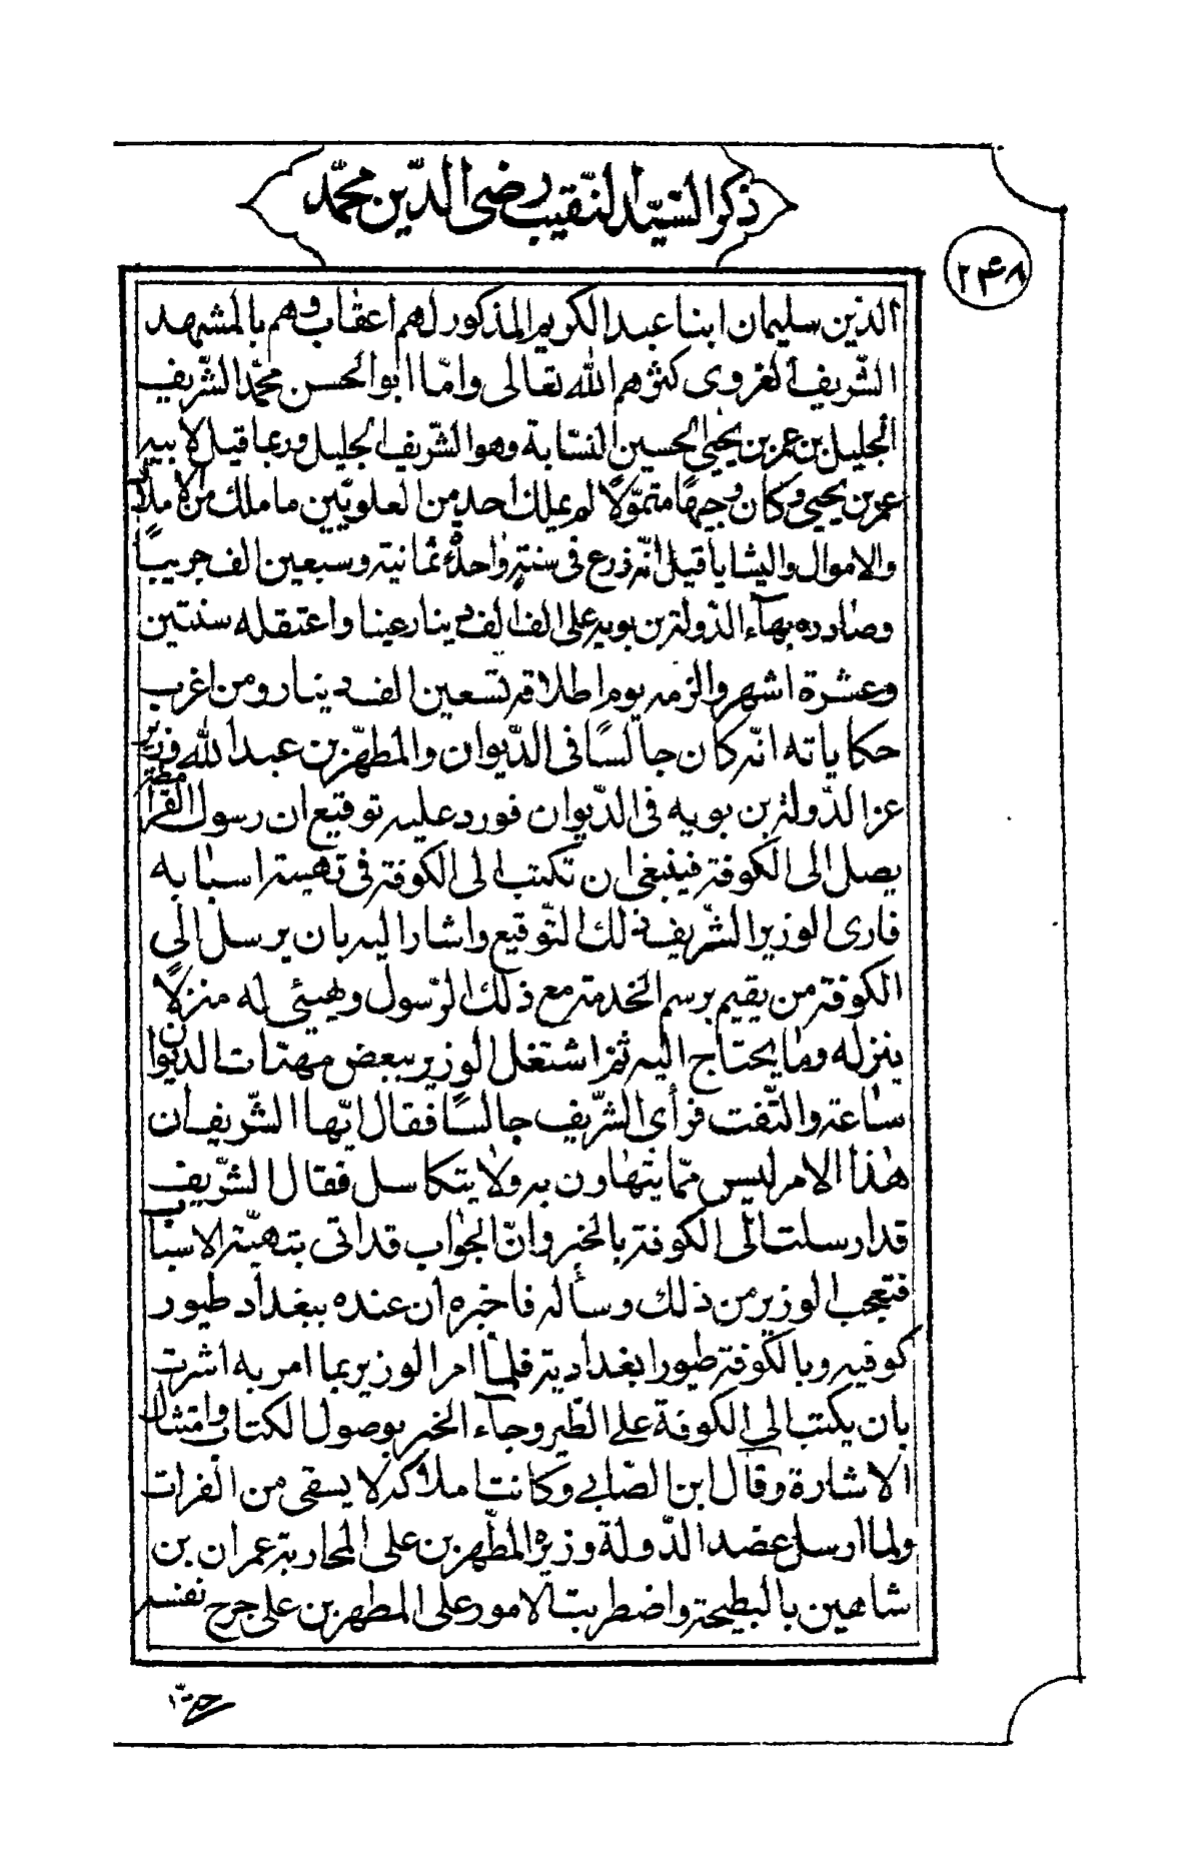 ذكر السّيّد النّقيب رضى الدّين محمّد
٢٤٨
الدّين سليمان ابنا عبد الكريم المذكور لهم اعقاب وهم بالمشهد
الشّريف الغروى كثرهم الله تعالى وامّا ابو الحسن محمّد الشّريف
الجليل بن عمر بن يحيى الحسين النسّابة وهو الشّريف الجليل وربما قيل لابيه
عمر بن يحيى وكان وجيهًا متموّلًا لم يملك احد من العلويّين ما ملك من الاملاك
والاموال والبشايا قيل انّه زرع فى سنة واحدة ثمانية وسبعين الف جريبًا
وصادره بهآء الدّولة بن بويه على الف الف دينار عينا واعتقله سنتين
وعشرة اشهر والزمه يوم اطلاقه تسعين الف دينار ومن اغرب
حكاياته انّه كان جالسًا فى الدّيوان والمطهّر بن عبد الله وزير
عز الدّولة بن بويه فى الدّيوان فورد عليه توقيع ان رسول القرامطة
يصل الى الكوفة فينبغى ان تكتب الى الكوفة فى تهيئة اسبابه
فارى الوزير الشّريف ذلك التّوقيع واشار اليه بان يرسل الى
الكوفة من يقيم برسم الخدمة مع ذلك الرّسول ويهيّئ له منزلًا
ينزله وما يحتاج اليه ثمّ اشتغل الوزير ببعض مهمّات الديوان
ساعة والتّفت فرأى الشّريف جالسًا فقال ايّها الشّريف ان
هذا الامر ليس ممّا يتهاون به ولا يتكاسل فقال الشّريف
قد ارسلت الى الكوفة بالخبر وانّ الجواب قد اتى بتهيّئة الاسباب
فتعجب الوزير من ذلك وسأله فاخبره ان عنده ببغداد طيور
كوفيه وبالكوفة طيورا بغدادية فلمّا امر الوزير بما امر به اشرت
بان يكتب الى الكوفة على الطّير وجآء الخبر بوصول الكتاب وامتثال
الاشارة وقال ابن الصّابى وكانت املاكه لا يسقى من الفرات
ولما ارسل عضد الدّولة وزيره المطّهر بن على المحاربة عمران بن
شاهين بالبطيحة واضطربت الامور على المطهر بن على جرح نفسه